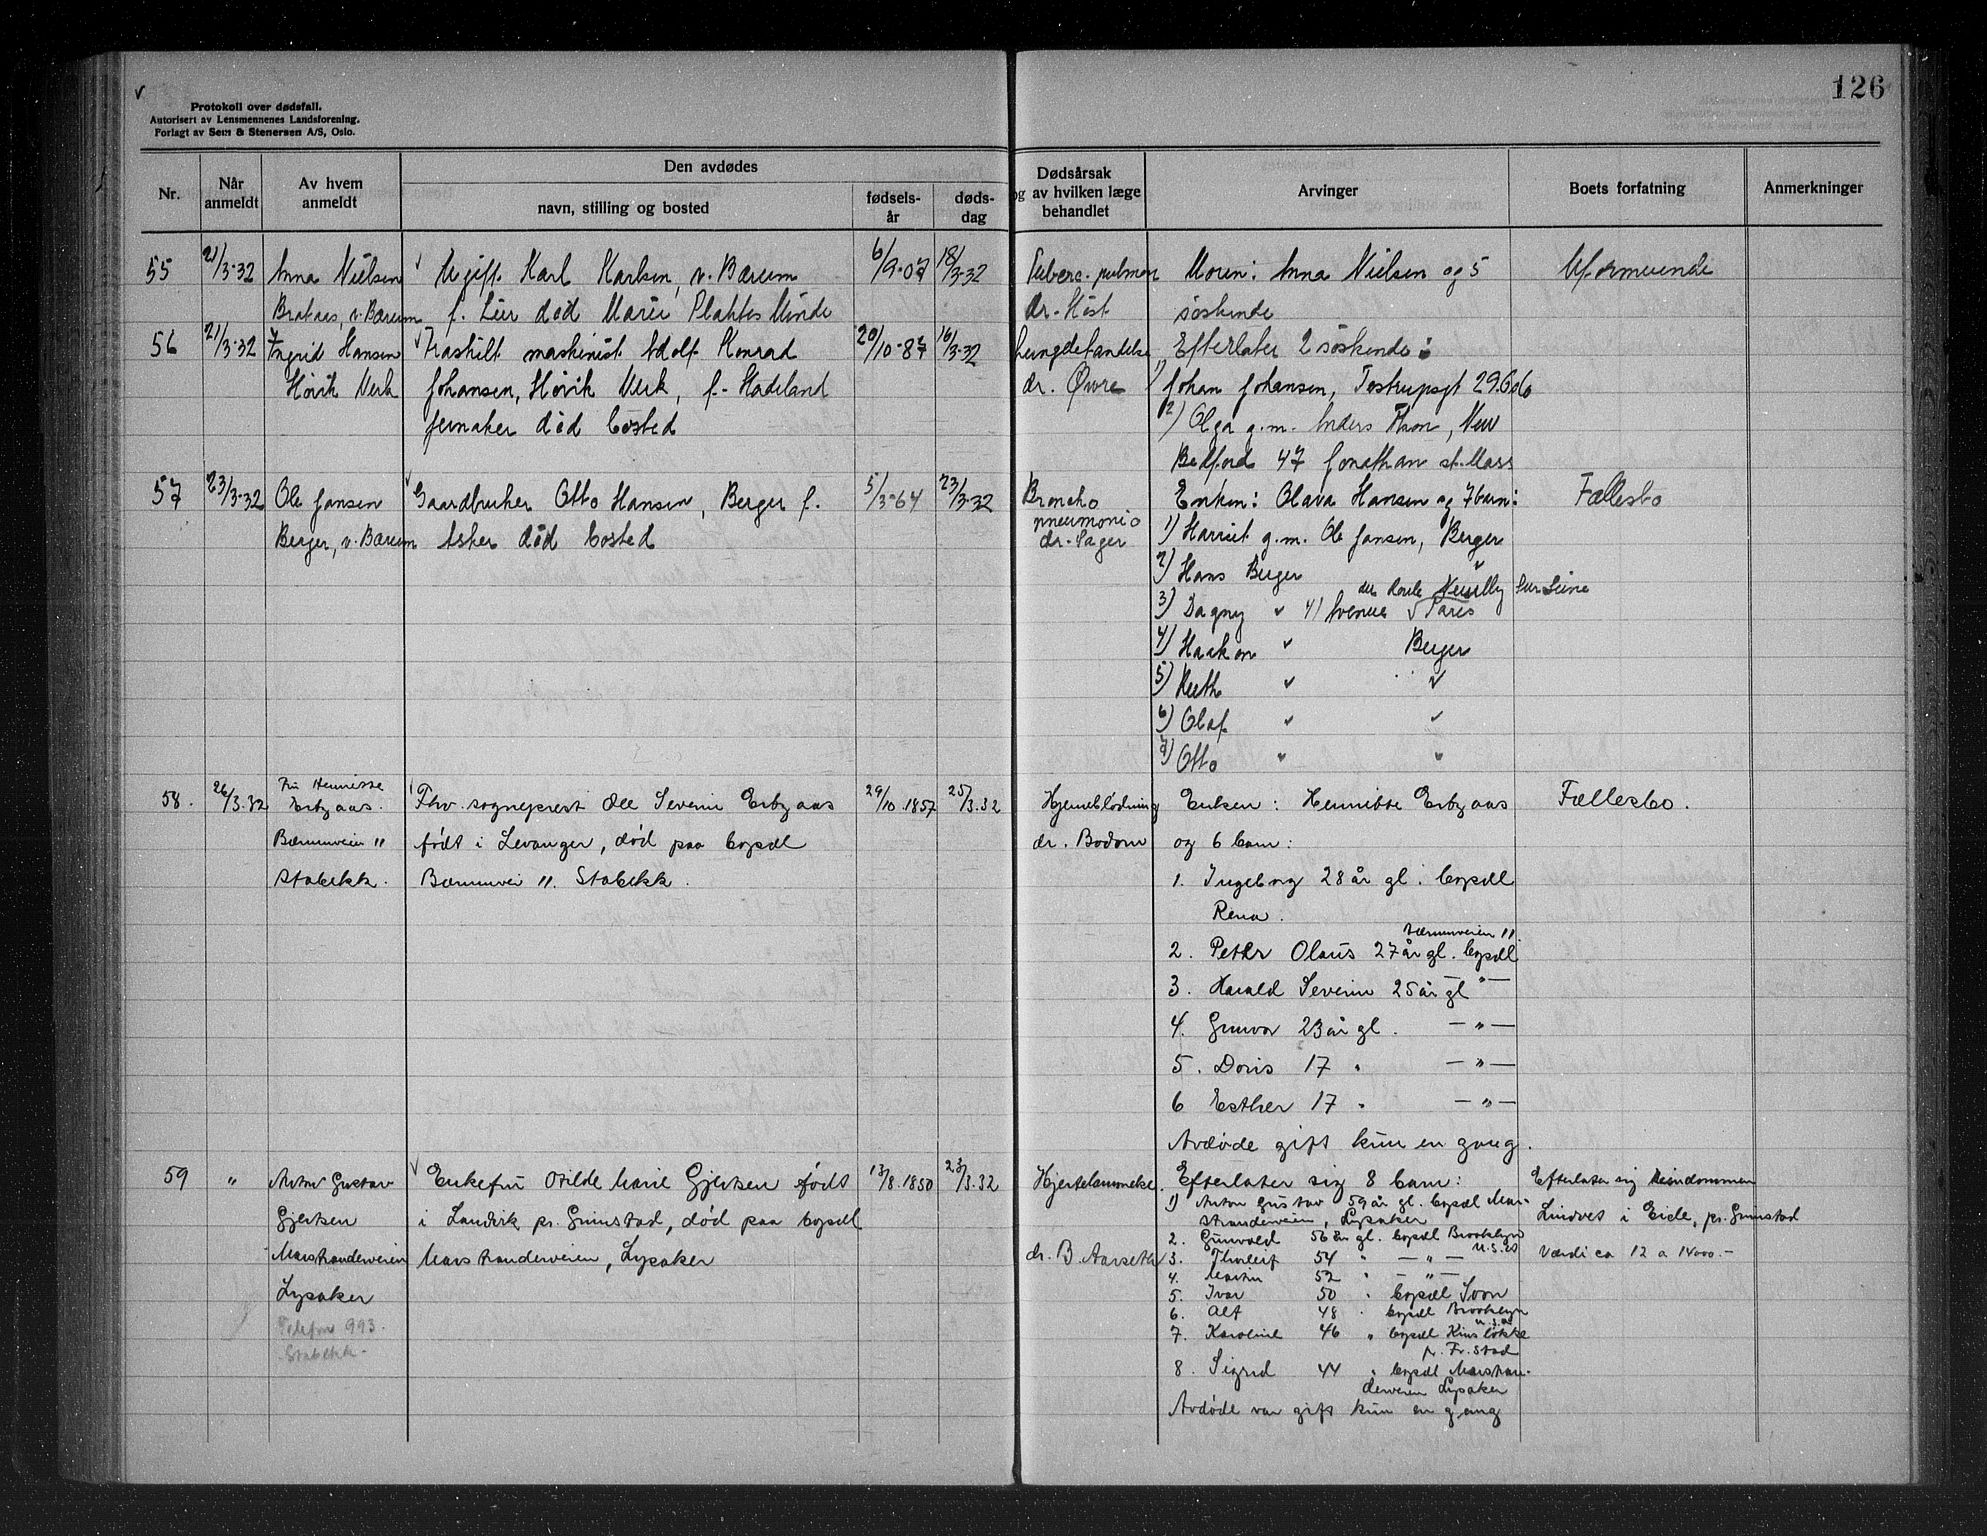 126
Protokoll over dødsfall.
Autorisert av Lensmennenes Landsforening.
Forlagt av Sem & Stenersen A/S, Oslo.
Nr.
Når anmeldt
Av hvem anmeldt
Den avdødes
navn, stilling og bosted
fødsels-år
døds-dag
Dødsårsak
og av hvilken læge
behandlet
Arvinger
Boets forfatning
Anmerkninger
55 21/3-32 Anna Nielsen Ugift Karl Karlsen, v. Bærum 6/9-07 18/3-32 Tuberc. pulmon Moren: Anna Nielsen og 5 Uformuende
v. Bærum f. Lier død Marie Plahtes Minde dr. Høst søskende
56 21/3-32 Ingrid Hansen Fraskilt maskinist Adolf Konrad 20/10-87 16/3-32 Lungebetændelse Efterlater 2 søskende:
Høvik Verk Johansen, Høvik Verk, f. Hadeland dr. Øvre 1) Johan Johansen, Tostrupsgt 29.
Jevnaker død bosted 2) Olga g.m. Anders Thon, New
Bedford 47 Jonathan st. Mass
57 23/3-32 Ole Jansen Gaardbruker Otto Hansen, Berger f. 5/3-64 23/3-32 Broncho Enken: Olava Hansen og 7 barn: Fællesbo
Berger, v. Bærum Asker død bosted pneumoni
dr. Sager 1) Harriet g.m. Ole Jansen, Berger
2) Hans Berger "
3) Dagny " 41 Avenue du Roule Neuilly sur Seine
Paris
4) Haakon " Berger
5) Ruth " "
6) Olaf " "
7) Otto " "
58. 26/3.32 Fru Henriette Fhv. sogneprest Ole Severin Erbyaas 29/10.1857 25/3.32 Hjerneblødning Enken: Henriette Erbyaas Fællesbo.
Erbyaas.
Bærumveien 11 født i Levanger, død paa bopæl dr. Bodom og 6 barn:
Stabekk. Bærumvei 11. Stabekk. 1. Ingeborg 28 år gl. bopæl
Rena.
Bærumveien 11.
2. Peter Olaus 27 år gl. bopæl
3. Harald Severin 25 år gl —"—
4. Gunvor 23 år gl. —"—
5. Doris 17 " —"—
6 Esther 17 " —"—
Avdøde gift kun en gang.
59 " Anton Gustav Enkefru Otilde Marie Gjertsen født 13/8.1850 23/3.32 Hjertelammelse. Efterlater sig 8 barn: Efterlater sig eiendommen
Gjertsen i Landvik pr. Grimstad, død paa bopæl 1) Anton Gustav 59 år gl. bopæl Mar-
stranderveien, Lysaker Lindvet i Eide, pr. Grimstad
2. Gunvald 56 år gl. bopæl Brooklyn
U.S.A
Marstranderveien Marstranderveien, Lysaker dr. B. Aarseth 3. Thorleif 54 " —"— Værdi ca 12 a 14000.-
4. Martin 52 " —"—
Lysaker 5. Ivar 50 " bopæl Soon
6. Alf 48 " bopæl Brooklyn
U.S.A
Telefon 993. 7. Karoline 46 " bopæl
Stabekk. pr. Fr.stad
8. Sigrid 44 " bopæl Marstran-
derveien Lysaker
Avdøde var gift kun en gang